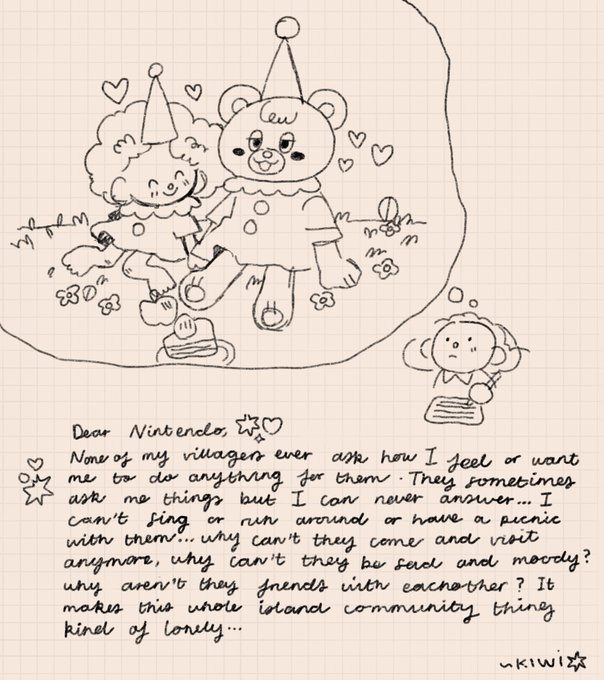 Dear Nintendo,
None of my villagers ever ask how I feel or want
me to do anything for them. They sometimes
ask me things but I can never answer... I
can't sing or run around or have a picnic
with them... why can't they come and visit
anymore, why can't they be sad and moody?
why aren't they friends with eachother? It
makes this whole island community thing
kind of lonely...
~KIWI